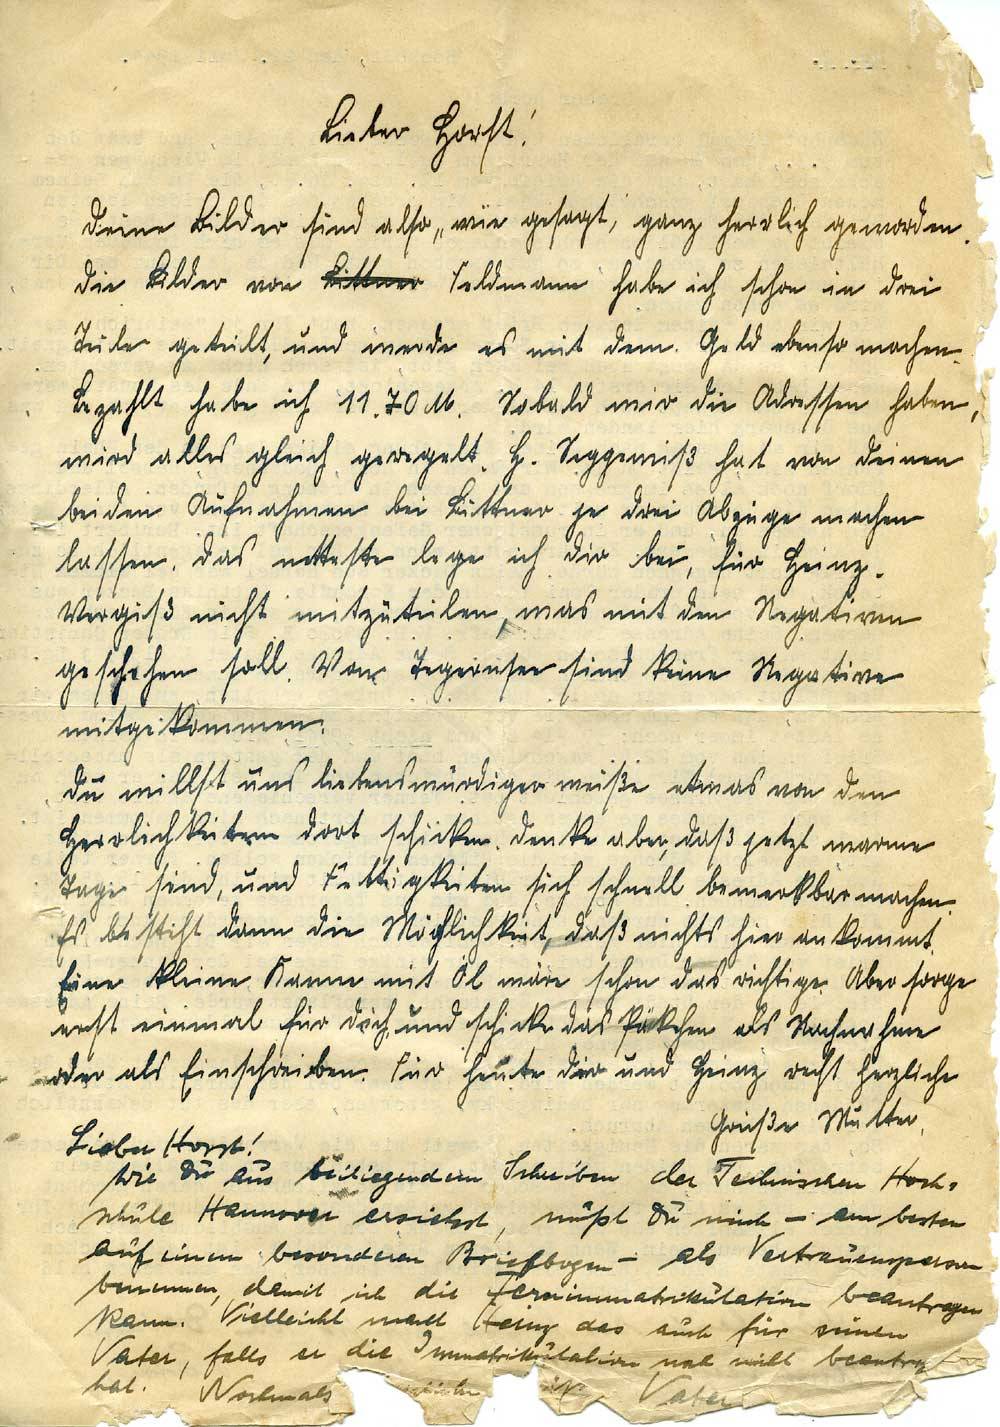 Lieber Horst!
Deine Bilder sind also, wie gesagt, ganz herrlich geworden.
Die Bilder von Büttner Feldmann habe ich schon in drei
Teile geteilt, und werde es mit dem Geld ebenso machen.
Bezahlt habe ich 11.70 M. Sobald wir die Adressen haben,
wird alles gleich geregelt. H. Seggewiß hat von deinen
beiden Aufnahmen bei Büttner je drei Abzüge machen
lassen. Das netteste lege ich dir bei, für Heinz.
Vergiß nicht mitzuteilen, was mit den Negativen
geschehen soll. Von Tegernsee sind keine Negative
mitgekommen.
Du willst uns liebenswürdigerweiße etwas von den
Herrlichkeiten dort schicken. Denke aber, daß jetzt warme
Tage sind, und Fettigkeiten sich schnell bemerkbar machen.
Es besteht dann die Möglichkeit, daß nichts hier ankommt.
Eine kleine Kanne mit Öl wäre schon das richtige. Aber sorge
erst einmal für dich, und schicke das Päkchen als Nachnahme
oder als Einschreiben. Für heute dir und Heinz recht herzliche
Grüße Mutter.
Lieber Horst!
Wie Du aus beiliegendem Schreiben der Technischen Hoch-
schule Hannover ersiehst, mußt Du mich – am besten
auf einem besonderen Briefbogen – als Vertrauensperson
benennen, damit ich die Fernimmatrikulation beantragen
kann. Vielleicht macht Heinz das auch für seinen
Vater, falls er die Immatrikulation noch nicht beantragt
hat. Nochmals Vater